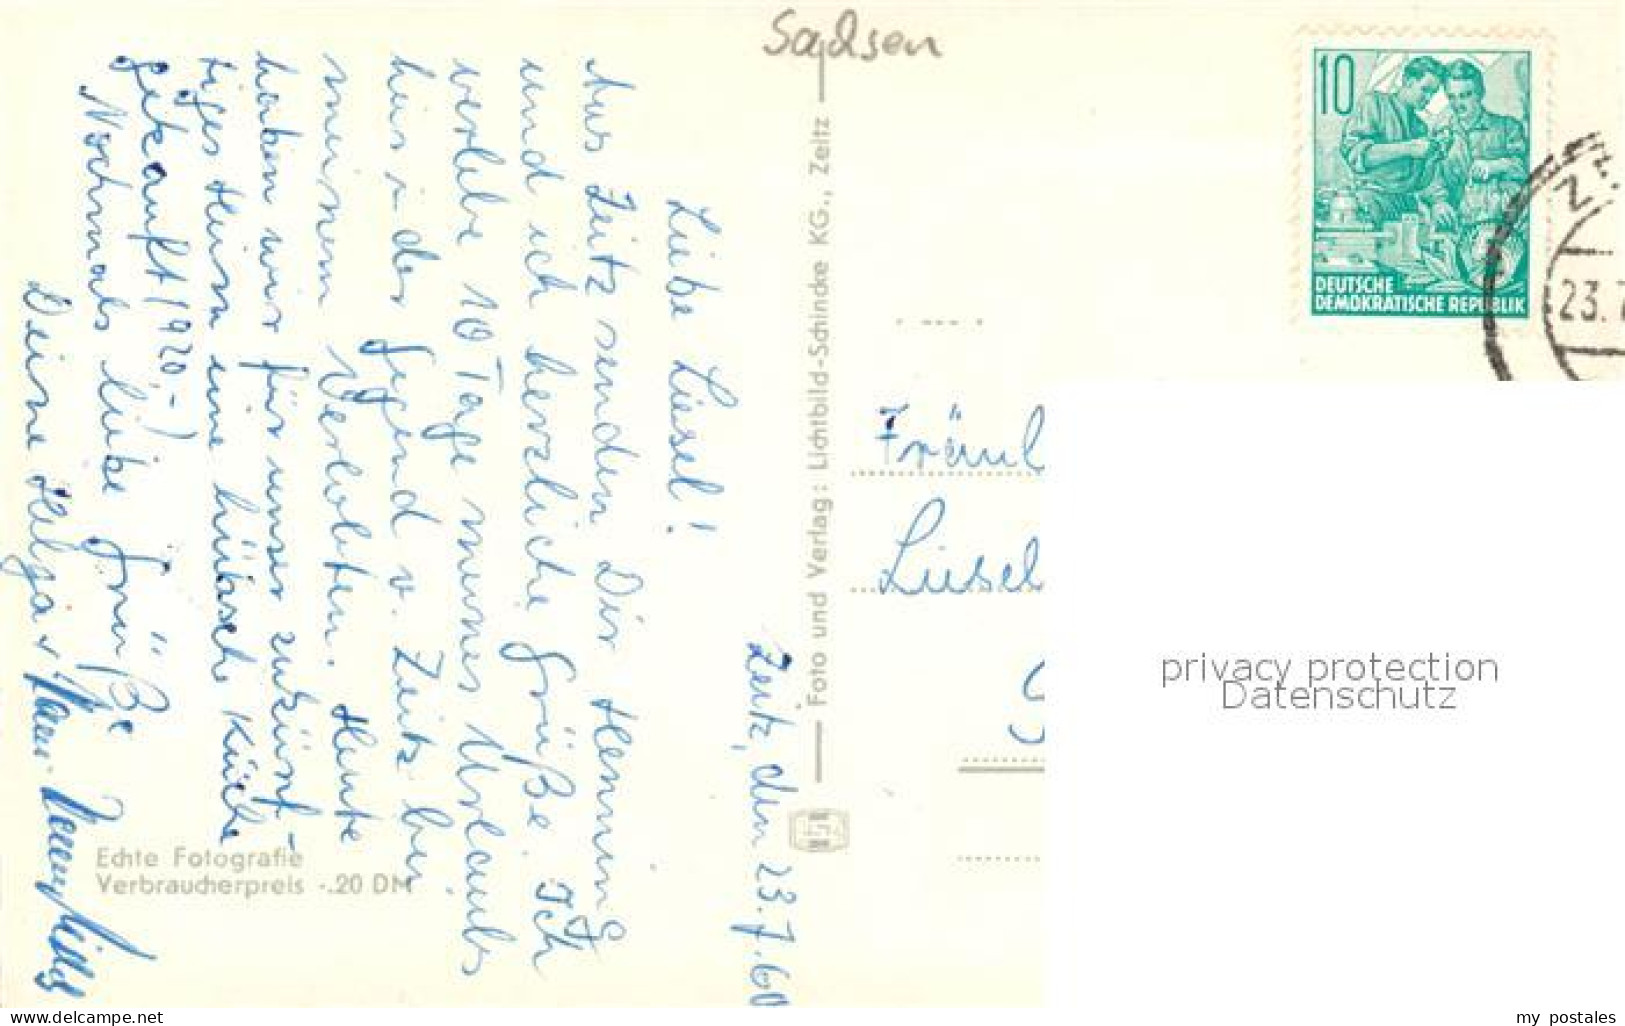 Sachsen
Zeitz, den 23.7.60
Liebe Liesel!
Aus Zeitz senden Dir Henning
und ich herzliche Grüße. Ich
verlebe 10 Tage meines Urlaubs
hier in der Jugend v. Zeitz bei
meinem Verlobten. Heute
haben wir für unser zukünf-
tiges Heim eine hübsche Küche
gekauft (920,-)
Nochmals liebe Grüße
Deine Helga +
Echte Fotografie
Verbraucherpreis -.20 DM
Foto und Verlag: Lichtbild-Schincke KG., Zeitz
10
DEUTSCHE
DEMOKRATISCHE REPUBLIK
23.7
Fräul
Liesel
privacy protection
Datenschutz
www.delcampe.net
my_postales